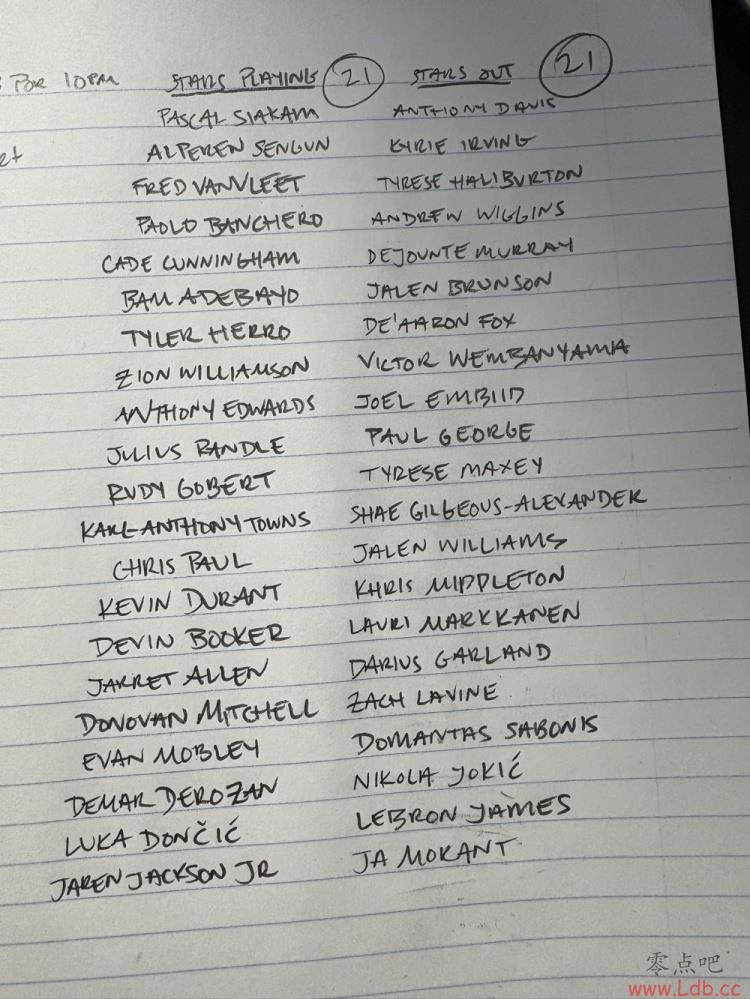 FOR 10PM STARS PLAYING 21 STARS OUT 21
PASCAL SIAKAM ANTHONY DAVIS
ALPEREN SENGUN KYRIE IRVING
FRED VANVLEET TYRESE HALIBURTON
PAOLO BANCHERO ANDREW WIGGINS
CADE CUNNINGHAM DEJOUNTE MURRAY
BAM ADEBAYO JALEN BRUNSON
TYLER HERRO DE'AARON FOX
ZION WILLIAMSON VICTOR WEMBANYAMA
ANTHONY EDWARDS JOEL EMBIID
JULIUS RANDLE PAUL GEORGE
RUDY GOBERT TYRESE MAXEY
KARL-ANTHONY TOWNS SHAE GILGEOUS-ALEXANDER
CHRIS PAUL JALEN WILLIAMS
KEVIN DURANT KHRIS MIDDLETON
DEVIN BOOKER LAURI MARKKANEN
JARRET ALLEN DARIUS GARLAND
DONOVAN MITCHELL ZACH LAVINE
EVAN MOBLEY DOMANTAS SABONIS
DEMAR DEROZAN NIKOLA JOKIĆ
LUKA DONČIĆ LEBRON JAMES
JAREN JACKSON JR JA MORANT
零点吧
www.Ldb.cc